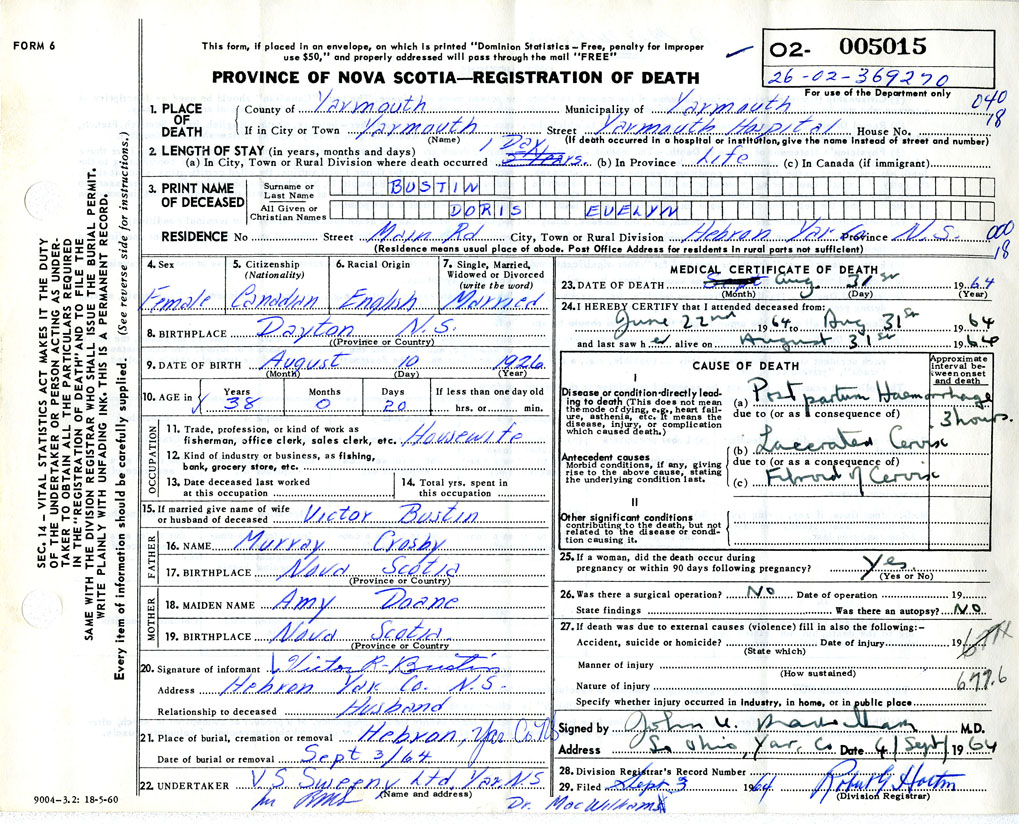 FORM 6
This form, if placed in an envelope, on which is printed "Dominion Statistics – Free, penalty for improper
use $50," and properly addressed will pass through the mail "FREE"
O2- 005015
26-02-369270
For use of the Department only
PROVINCE OF NOVA SCOTIA—REGISTRATION OF DEATH
040
18
1. PLACE OF DEATH
County of Yarmouth Municipality of Yarmouth
If in City or Town Yarmouth Street Yarmouth Hospital House No.
(Name) (If death occurred in a hospital or institution, give the name instead of street and number)
2. LENGTH OF STAY (in years, months and days) 1 Day
(a) In City, Town or Rural Division where death occurred 2 Years. (b) In Province Life (c) In Canada (if immigrant)
3. PRINT NAME OF DECEASED
Surname or Last Name BUSTIN
All Given or Christian Names DORIS EVELYN
RESIDENCE No Street Main Rd City, Town or Rural Division Hebron Yar Co Province N.S. 000
18
(Residence means usual place of abode. Post Office Address for residents in rural parts not sufficient)
4. Sex
Female
5. Citizenship
(Nationality)
Canadian
6. Racial Origin
English
7. Single, Married,
Widowed or Divorced
(write the word)
Married
8. BIRTHPLACE Dayton N.S.
(Province or Country)
9. DATE OF BIRTH August 10 1926
(Month) (Day) (Year)
10. AGE in Years 38 Months 0 Days 20 If less than one day old
hrs. or min.
OCCUPATION
11. Trade, profession, or kind of work as
fisherman, office clerk, sales clerk, etc. Housewife
12. Kind of industry or business, as fishing,
bank, grocery store, etc.
13. Date deceased last worked
at this occupation
14. Total yrs. spent in
this occupation
15. If married give name of wife
or husband of deceased Victor Bustin
FATHER
16. NAME Murray Crosby
17. BIRTHPLACE Nova Scotia
(Province or Country)
MOTHER
18. MAIDEN NAME Amy Doane
19. BIRTHPLACE Nova Scotia
(Province or Country
20. Signature of informant Victor R. Bustin
Address Hebron Yar. Co. N.S.
Relationship to deceased Husband
21. Place of burial, cremation or removal Hebron, Yar Co NS
Date of burial or removal Sept 3/64
22. UNDERTAKER V.S. Sweeny Ltd, Yar. N.S
(Name and address)
9004-3.2: 18-5-60
MEDICAL CERTIFICATE OF DEATH
23. DATE OF DEATH Sept Aug. 31st 1964
(Month) (Day) (Year)
24. I HEREBY CERTIFY that I attended deceased from:
June 22nd 1964 to Aug 31st 1964
and last saw her alive on August 31st 1964
CAUSE OF DEATH
Approximate
interval be-
tween onset
and death
I
Disease or condition directly lead-
ing to death (This does not mean
the mode of dying, e.g., heart fail-
ure, asthenia, etc. It means the
disease, injury, or complication
which caused death.)
(a) Post partum Haemorrhage
3 hours.
due to (or as a consequence of)
(b) Lacerated Cervix
Antecedent causes
Morbid conditions, if any, giving
rise to the above cause, stating
the underlying condition last.
due to (or as a consequence of)
(c) Fibroid of Cervix
II
Other significant conditions
contributing to the death, but not
related to the disease or condi-
tion causing it.
25. If a woman, did the death occur during
pregnancy or within 90 days following pregnancy? Yes
(Yes or No)
26. Was there a surgical operation? No Date of operation 19
State findings Was there an autopsy? No
27. If death was due to external causes (violence) fill in also the following:-
Accident, suicide or homicide? Date of injury 19
(State which)
Manner of injury
(How sustained)
677.6
Nature of injury
Specify whether injury occurred in industry, in home, or in public place
Signed by John M. M.D.
Address So Ohio, Yar. Co Date 4/Sept/1964
28. Division Registrar's Record Number
29. Filed Sept 3 1964 Robert G Horton
(Division Registrar)
Dr. MacWilliams
SEC. 14 – VITAL STATISTICS ACT MAKES IT THE DUTY
OF THE UNDERTAKER OR PERSON ACTING AS UNDER-
TAKER TO OBTAIN ALL THE PARTICULARS REQUIRED
IN THE "REGISTRATION OF DEATH" AND TO FILE THE
SAME WITH THE DIVISION REGISTRAR WHO SHALL ISSUE THE BURIAL PERMIT.
WRITE PLAINLY WITH UNFADING INK. THIS IS A PERMANENT RECORD.
Every item of information should be carefully supplied. (See reverse side for instructions.)